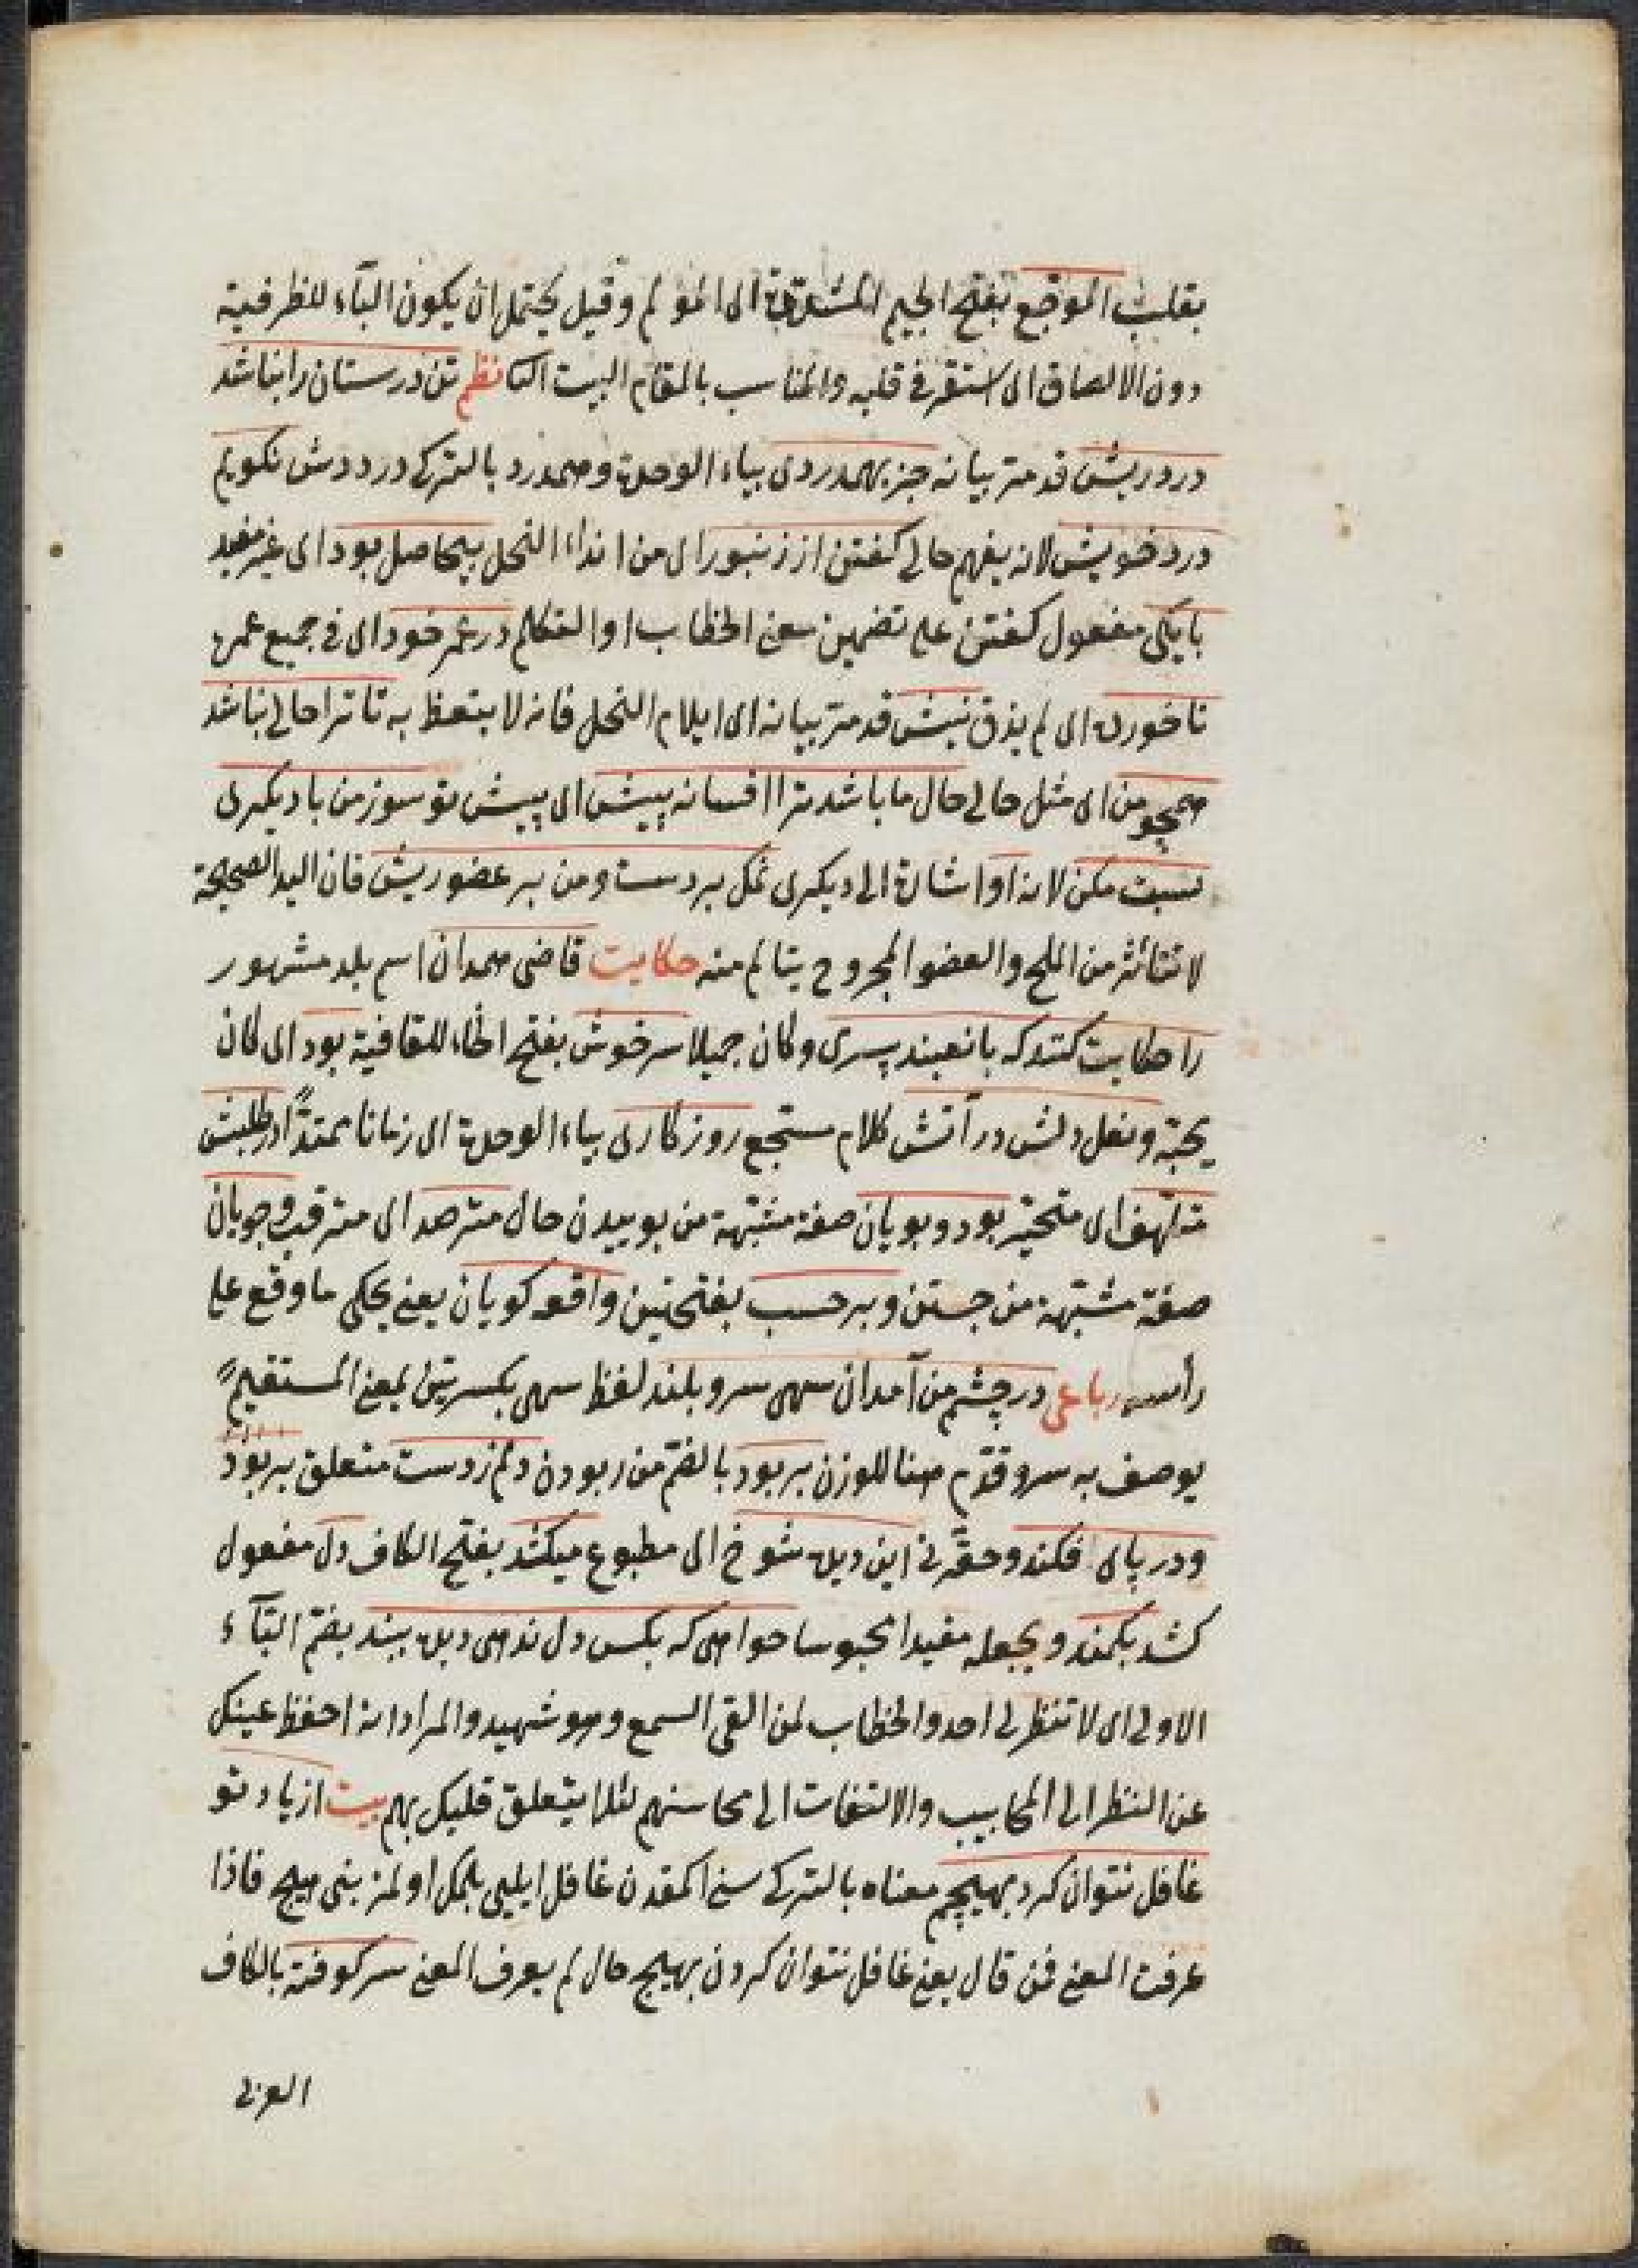 بقلب الموجع بفتح الجيم المشددة اى المؤلم وقيل يحتمل ان يكون الباء للظرفية
دون الالصاق اى استقر فى قلبه والمناسب بالمقام البيت نظم تن درستان را نباشد
درد ريش قد مر بيانه جز بهمدردى بياء الوحدة وهمدرد بالتركى درددش نكويم
درد خويش لانه يفهم حالى كفتن از زنبور اى من انداء النحل بيحاصل بود اى غير مفيد
بايكى مفعول كفتن على تضمين معنى الخطاب او التكلم در عمر خود اى فى جميع عمره
ناخورده اى لم يذق نيش قد مر بيانه اى ايلام النحل فانه لا يتعظ به تا ترا حالى نباشد
همچو من اى مثل حالى حال ما باشد ترا افسانه پيش اى پيش تو سوز من با ديكرى
نسبت مكن لانه او اشارة الى ديكرى نمك بر دست ومن بر عضو ريش فان اليد الصحيحة
لا تتأثر من الملح والعضو المجروح يتألم منه حكايت قاضى همدان اسم بلد مشهور
را حكايت كنند كه با نعلبند پسرى وكان جميلا سر خوش بفتح الخاء للقافية بود اى كان
يحبه ونعل دلش در آتش كلام مستجمع روزكارى بياء الوحدة اى زمانا ممتدا در طلبش
متلهف اى متحير بود وپويان صفة مشبهة من پوييدن حال مترصد اى مترقب وجويان
صفة مشبهة من جستن وبر حسب بفتحتين واقعه كويان يعنى يحكى ما وقع على
رأسه رباعى در چشم من آمد ان سهى سرو بلند لفظ سهى بكسرتين بمعنى المستقيم
يوصف به سرو قدم هنا للوزن بربود بالضم من ربودن دلم ز دست متعلق بربود
ودر پاى فكند وحقرنى اين ديده شوخ اى مطبوع ميكشد بفتح الكاف دل مفعول
كشد بكمند ويجعله مقيدا محبوسا خواهى كه بكس دل ندهى ديده ببند بضم الباء
الاولى اى لا تنظر لى احد والخطاب لمن القى السمع وهو شهيد والمراد انه احفظ عينك
عن النظر الى المحابيب والالتفات الى محاسنهم لئلا يتعلق قلبك بهم بيت از ياد تو
غافل نتوان كرد بهيچم معناه بالتركى سنى اكمقدن غافل ايلمى بلمك اولمز بنى هيچ فاذا
عرفت المعنى فمن قال يعنى غافل نتوان كردن بهيچ حال لم يعرف المعنى سر كوفته بالكاف
العربى